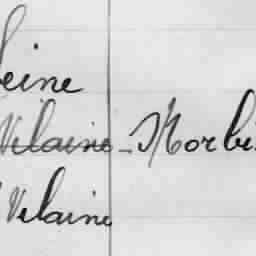 eine
Vilaine - Morbi
Vilaine